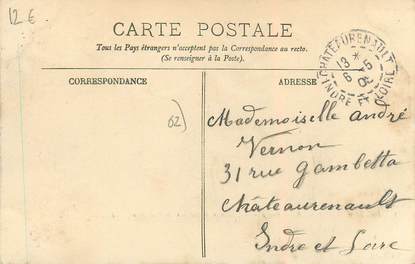 12 €
CARTE POSTALE
Tous les Pays étrangers n'acceptent pas la Correspondance au recto.
(Se renseigner à la Poste).
CORRESPONDANCE
ADRESSE
CHATEAURENAULT
13 *
6 - 5
05
INDRE ET LOIRE
62)
Mademoiselle André
Vernon
31 rue Gambetta
Châteaurenault
Indre et Loire